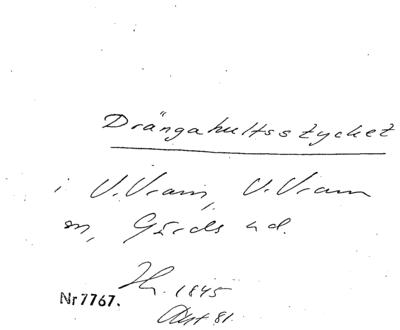 Drängahultsstycket
i V. Vram, V. Vram
sn, Gärds hd.
Hr. 1845
Nr 7767.
Akt 81